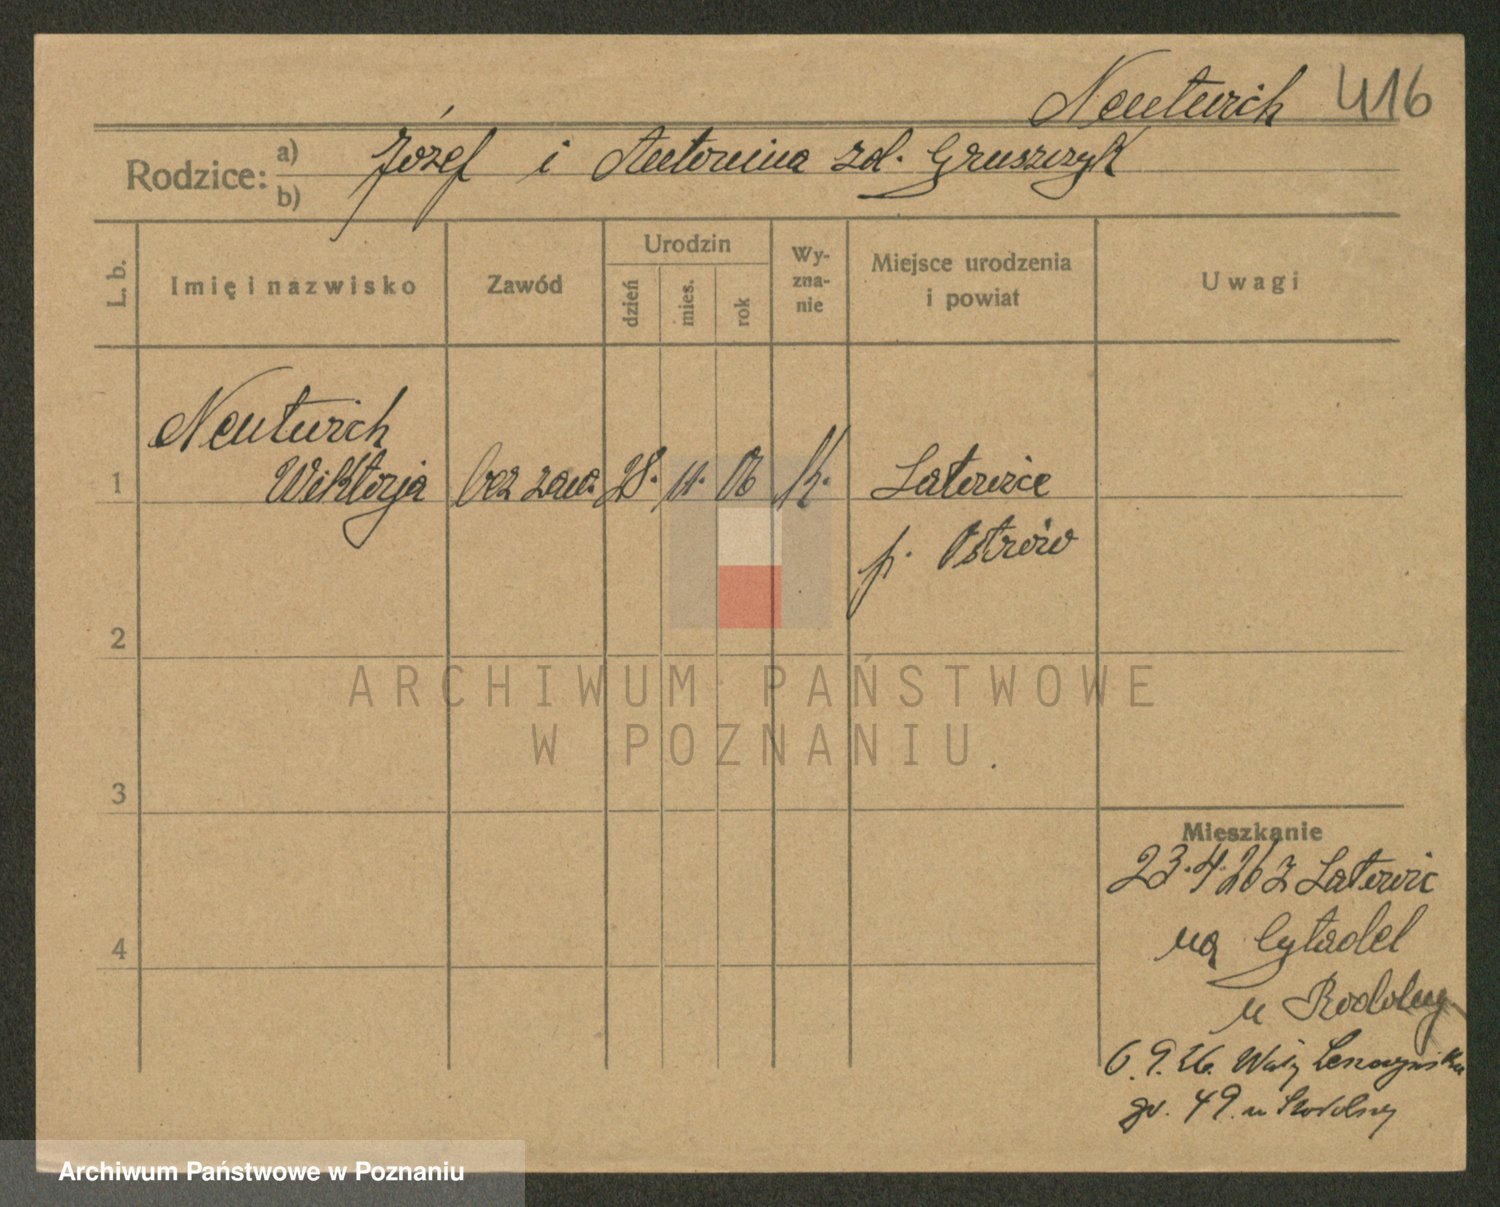 Neuturich 416
Rodzice: a) Józef i Antonina zd. Gruszczyk
b)
L. b.
Imię i nazwisko
Zawód
Urodzin
dzień
mies.
rok
Wy-
zna-
nie
Miejsce urodzenia
i powiat
Uwagi
Neuturich
1 Wiktorja bez zawo. 28. 11. 06 K. Latowice
p. Ostrów
2
3
4
Mieszkanie
23.4.26 z Latowic
na Cytadel
u
6.9.26. Wały Leszczyńska
49. u
ARCHIWUM PAŃSTWOWE
W POZNANIU
Archiwum Państwowe w Poznaniu